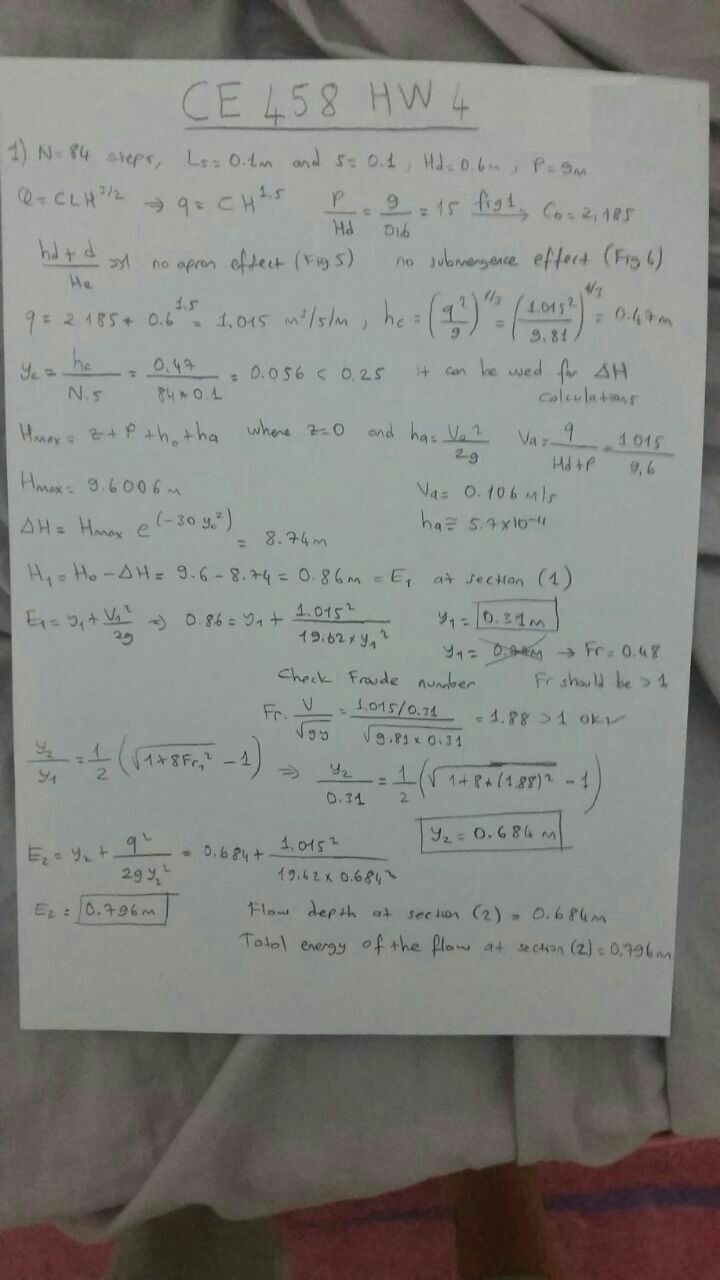 CE 458 HW 4
1) N=84 steps, Ls=0.1m and s=0.1, Hd=0.6m, P=9m
Q=CLH^3/2 ⇒ q=CH^1.5 P/Hd = 9/0.6 = 15 fig1 → Co=2,185
hd+d/He >1 no apron effect (Fig 5) no submergence effect (Fig 6)
q = 2.185*0.6^1.5 = 1.015 m³/s/m, hc = (q²/g)^1/3 = (1.015²/9.81)^1/3 = 0.47m
yc = hc/N.s = 0.47/84*0.1 = 0.056 < 0.25 it can be used for ΔH
calculations
Hmax = z+P+ho+ha where z=0 and ha = Va²/2g Va = q/Hd+P = 1.015/9,6
Hmax = 9.6006m Va = 0.106 m/s
ΔH = Hmax e^(-30 yc²) = 8.74m ha ≅ 5.7x10^-4
H1 = Ho-ΔH = 9.6-8.74 = 0.86m = E1 at section (1)
E1 = y1 + V1²/2g ⇒ 0.86 = y1 + 1.015²/19.62 x y1² y1 = 0.31m
y1 = → Fr = 0.48
Check Froude number Fr should be >1
Fr. V/√gy = 1.015/0.31/√9.81 x 0.31 = 1.88 > 1 ok✓
y2/y1 = 1/2 (√1+8Fr1² - 1) ⇒ y2/0.31 = 1/2 (√1+8*(1.88)² - 1)
y2 = 0.684 m
E2 = y2 + q²/2gy2² = 0.684 + 1.015²/19.62 x 0.684²
E2 = 0.796m Flow depth at section (2) = 0.684m
Total energy of the flow at section (2) = 0.796m